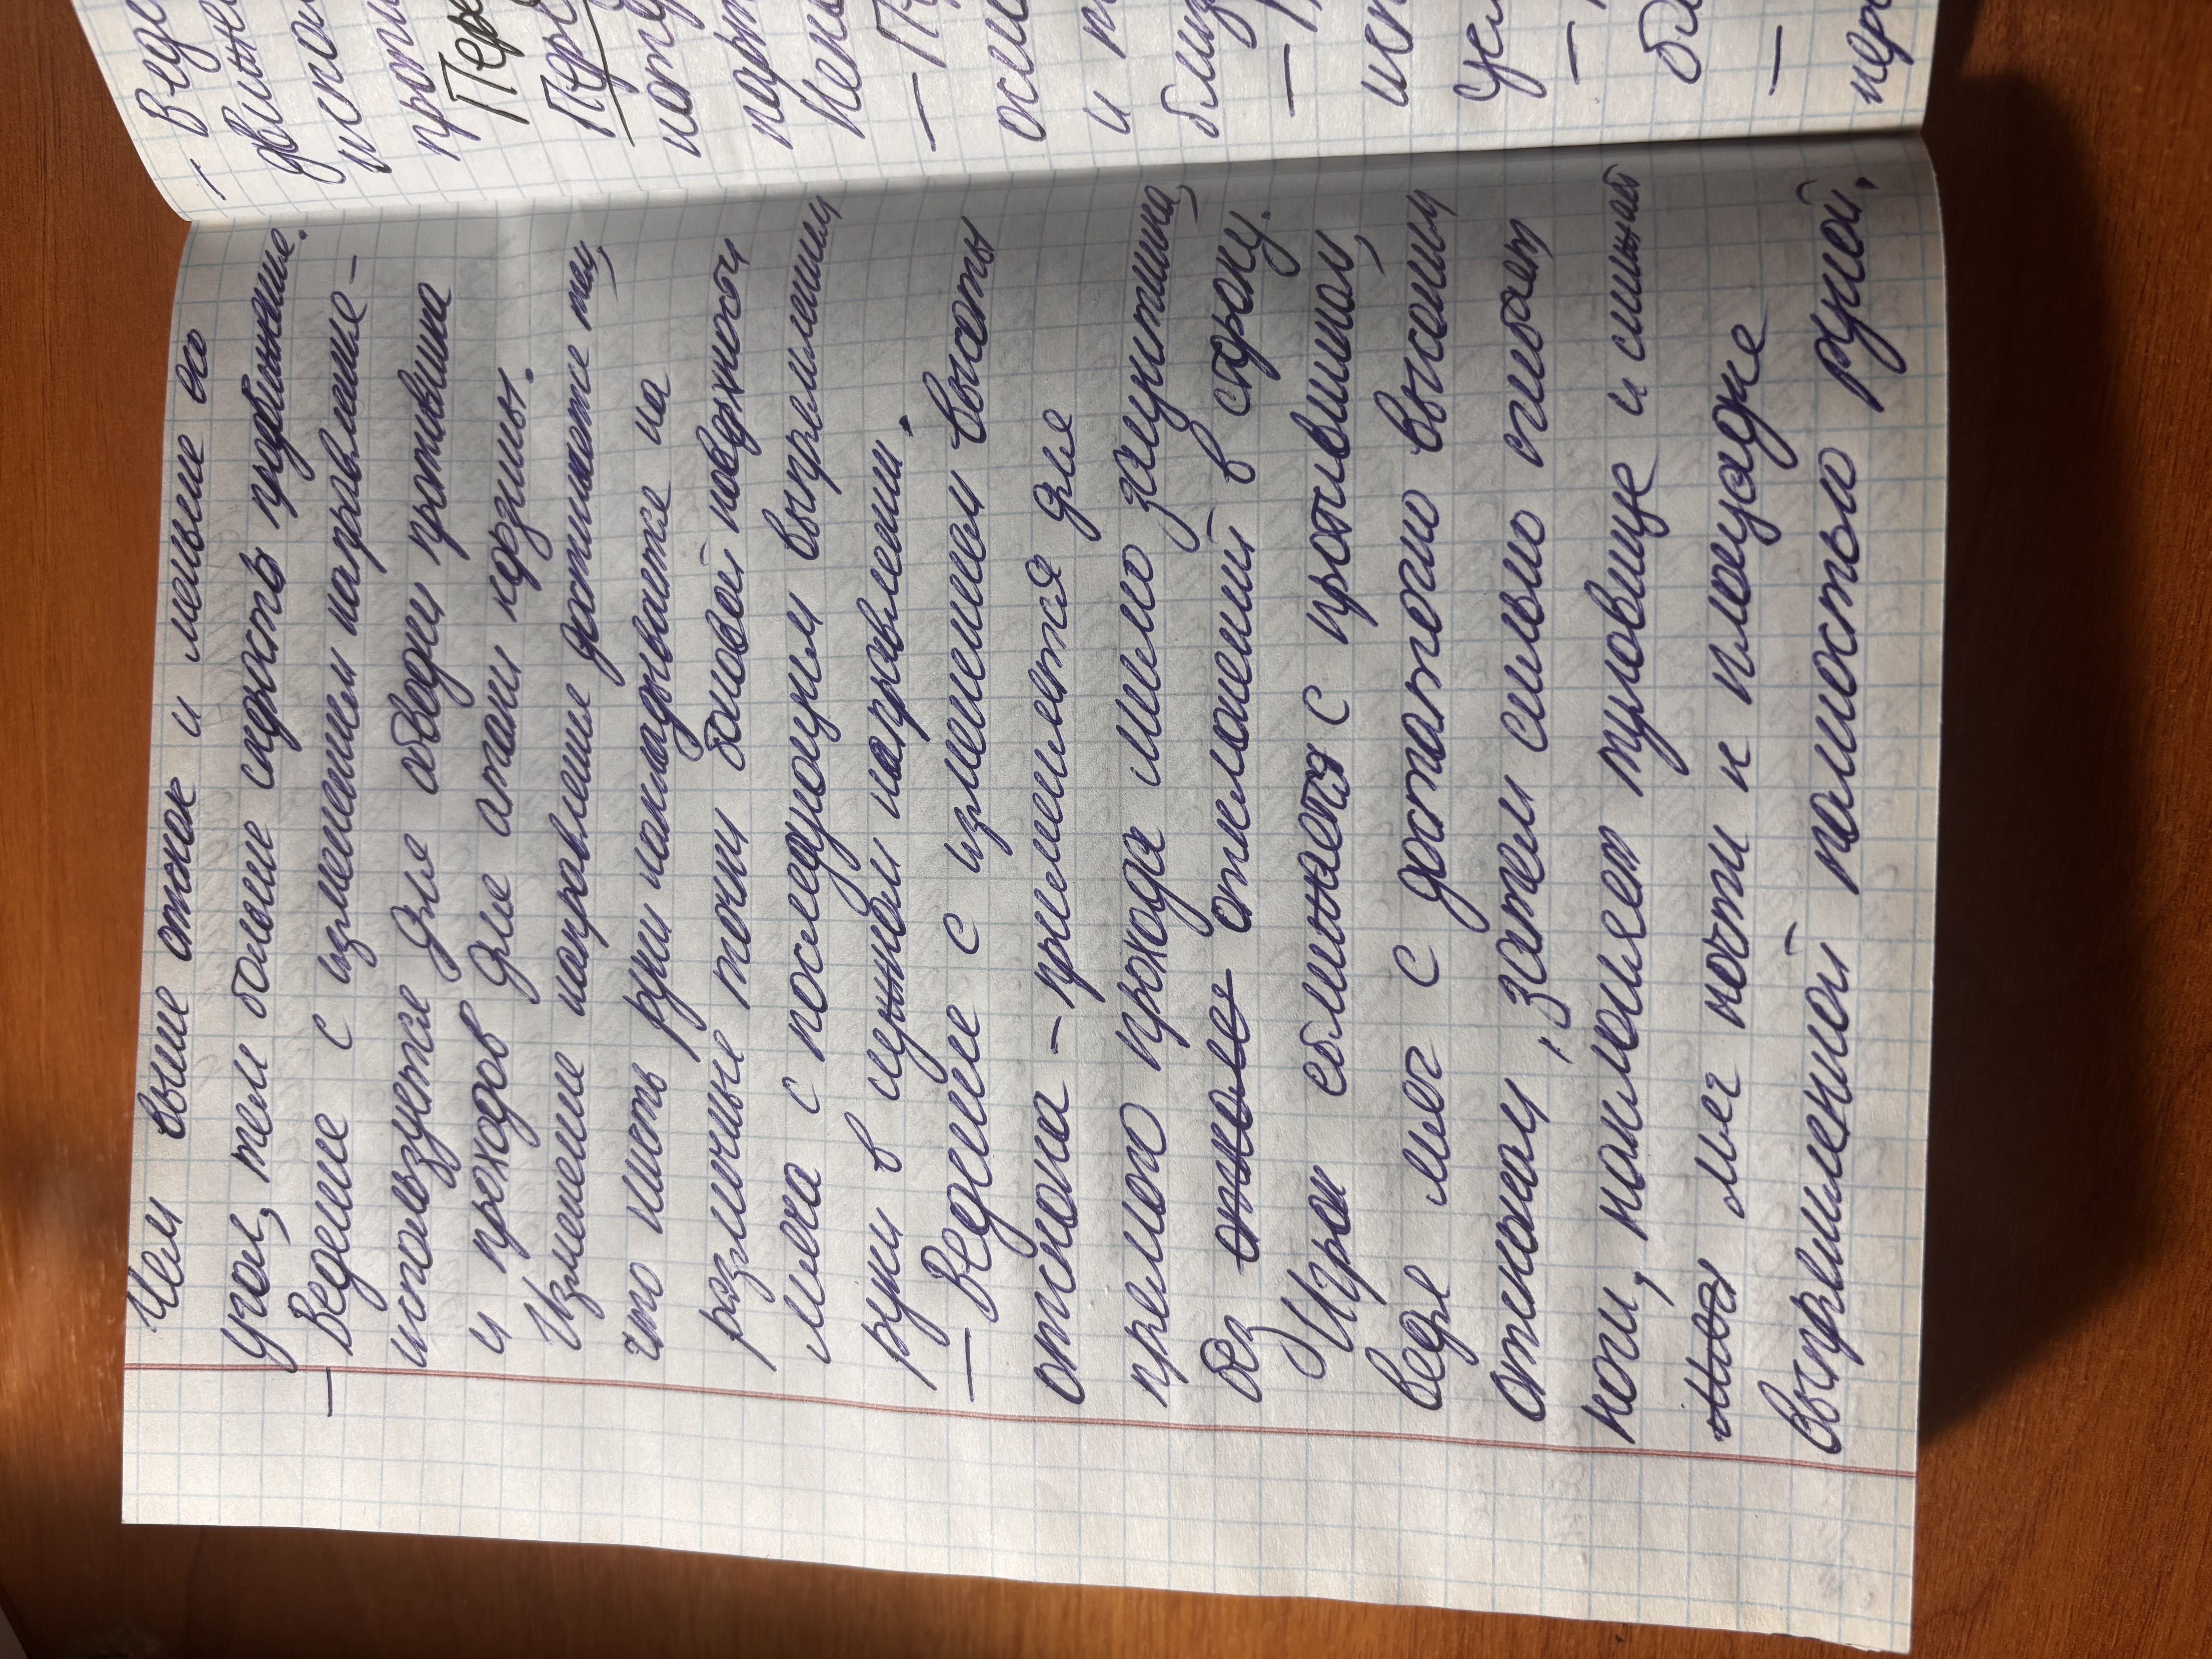 Чем выше отскок и меньше его
угол, тем больше скорость продвижение.
— Ведение с изменением направление -
используется для обводки противника
и проходов для атаки корзины.
Изменение направление достигается тем,
что кисть руки накладывается на
различные точки боковой поверхности
мяча с последующим выпрямлением
руки в нужном направлении.
— Ведение с изменением высоты
отскока - применяется для
прямого прохода мимо защитника,
без отклонений в сторону.
Игрок сближается с противником,
ведя мяч с достаточно высоким
отскоком, затем сильно сгибает
ноги, наклоняет туловище и сильный
мяч почти к площадке
выпрямленной полностью рукой.
— Веде
движе
испол
проти
Пере
Пере
— П
и п
близ
— П
исп
— П
—